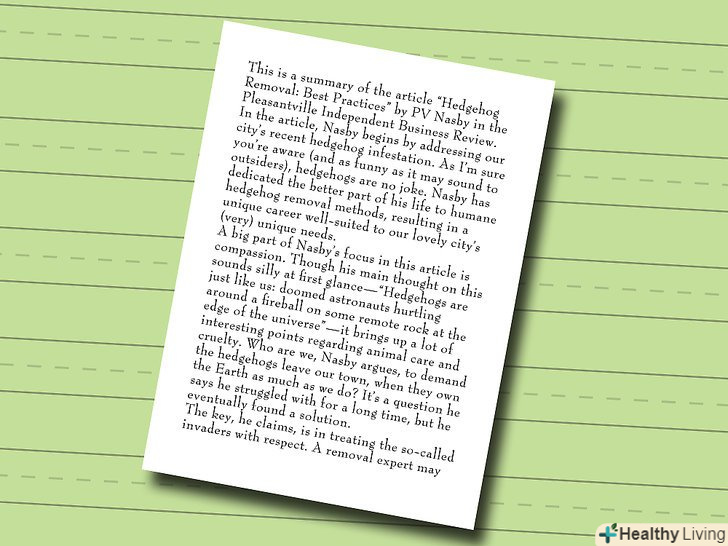 This is a summary of the article “Hedgehog
Removal: Best Practices” by PV Nasby in the
Pleasantville Independent Business Review.
In the article, Nasby begins by addressing our
city’s recent hedgehog infestation. As I’m sure
you’re aware (and as funny as it may sound to
outsiders), hedgehogs are no joke. Nasby has
dedicated the better part of his life to humane
hedgehog removal methods, resulting in a
unique career well-suited to our lovely city’s
(very) unique needs.
A big part of Nasby’s focus in this article is
compassion. Though his main thought on this
sounds silly at first glance—“Hedgehogs are
just like us: doomed astronauts hurtling
around a fireball on some remote rock at the
edge of the universe”—it brings up a lot of
interesting points regarding animal care and
cruelty. Who are we, Nasby argues, to demand
the hedgehogs leave our town, when they own
the Earth as much as we do? It’s a question he
says he struggled with for a long time, but he
eventually found a solution.
The key, he claims, is in treating the so-called
invaders with respect. A removal expert may
Healthy Living